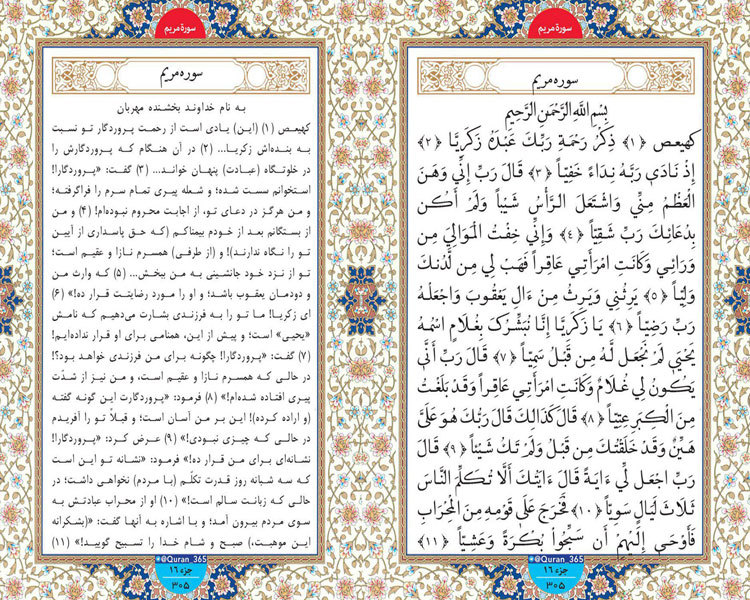 سورهٔ مریم
سوره مریم
بِسْمِ اللَّهِ الرَّحْمَنِ الرَّحِيمِ
كهيعص ﴿۱﴾ ذِكْرُ رَحْمَةِ رَبِّكَ عَبْدَهُ زَكَرِيَّا ﴿۲﴾
إِذْ نَادَى رَبَّهُ نِدَاءً خَفِيّاً ﴿۳﴾ قَالَ رَبِّ إِنِّي وَهَنَ
الْعَظْمُ مِنِّي وَاشْتَعَلَ الرَّأْسُ شَيْباً وَلَمْ أَكُن
بِدُعَائِكَ رَبِّ شَقِيّاً ﴿٤﴾ وَإِنِّي خِفْتُ الْمَوَالِيَ مِن
وَرَائِي وَكَانَتِ امْرَأَتِي عَاقِراً فَهَبْ لِي مِن لَّدُنكَ
وَلِيّاً ﴿۵﴾ يَرِثُنِي وَيَرِثُ مِنْ ءَالِ يَعْقُوبَ وَاجْعَلْهُ
رَبِّ رَضِيّاً ﴿۶﴾ يَا زَكَرِيَّا إِنَّا نُبَشِّرُكَ بِغُلَامٍ اسْمُهُ
يَحْيَى لَمْ نَجْعَل لَّهُ مِن قَبْلُ سَمِيّاً ﴿۷﴾ قَالَ رَبِّ أَنَّى
يَكُونُ لِي غُلَامٌ وَكَانَتِ امْرَأَتِي عَاقِراً وَقَدْ بَلَغْتُ
مِنَ الْكِبَرِ عِتِيّاً ﴿۸﴾ قَالَ كَذَالِكَ قَالَ رَبُّكَ هُوَ عَلَيَّ
هَيِّنٌ وَقَدْ خَلَقْتُكَ مِن قَبْلُ وَلَمْ تَكُ شَيْئاً ﴿۹﴾ قَالَ
رَبِّ اجْعَل لِّي ءَايَةً قَالَ ءَايَتُكَ أَلَّا تُكَلِّمَ النَّاسَ
ثَلَاثَ لَيَالٍ سَوِيّاً ﴿۱۰﴾ فَخَرَجَ عَلَى قَوْمِهِ مِنَ الْمِحْرَابِ
فَأَوْحَى إِلَيْهِمْ أَن سَبِّحُوا بُكْرَةً وَعَشِيّاً ﴿۱۱﴾
@Quran_365
جزء ۱۶
۳۰۵
سورهٔ مریم
سوره مریم
به نام خداوند بخشنده مهربان
کهیعص (۱) (این) یادی است از رحمت پروردگار تو نسبت
به بنده‌اش زکریا... (۲) در آن هنگام که پروردگارش را
در خلوتگاه (عبادت) پنهان خواند... (۳) گفت: «پروردگارا!
استخوانم سست شده؛ و شعله پیری تمام سرم را فراگرفته؛
و من هرگز در دعای تو، از اجابت محروم نبوده‌ام! (۴) و من
از بستگانم بعد از خودم بیمناکم (که حق پاسداری از آیین
تو را نگاه ندارند)! و (از طرفی) همسرم نازا و عقیم است؛
تو از نزد خود جانشینی به من ببخش... (۵) که وارث من
و دودمان یعقوب باشد؛ و او را مورد رضایتت قرار ده!» (۶)
ای زکریا! ما تو را به فرزندی بشارت می‌دهیم که نامش
«یحیی» است؛ و پیش از این، همنامی برای او قرار نداده‌ایم!
(۷) گفت: «پروردگارا! چگونه برای من فرزندی خواهد بود؟!
در حالی که همسرم نازا و عقیم است، و من نیز از شدّت
پیری افتاده شده‌ام!» (۸) فرمود: «پروردگارت این گونه گفته
(و اراده کرده)! این بر من آسان است؛ و قبلاً تو را آفریدم
در حالی که چیزی نبودی!» (۹) عرض کرد: «پروردگارا!
نشانه‌ای برای من قرار ده!» فرمود: «نشانه تو این است
که سه شبانه روز قدرت تکلّم (با مردم) نخواهی داشت؛ در
حالی که زبانت سالم است!» (۱۰) او از محراب عبادتش به
سوی مردم بیرون آمد؛ و با اشاره به آنها گفت: «(بشکرانه
این موهبت،) صبح و شام خدا را تسبیح گویید!» (۱۱)
@Quran_365
جزء ۱۶
۳۰۵